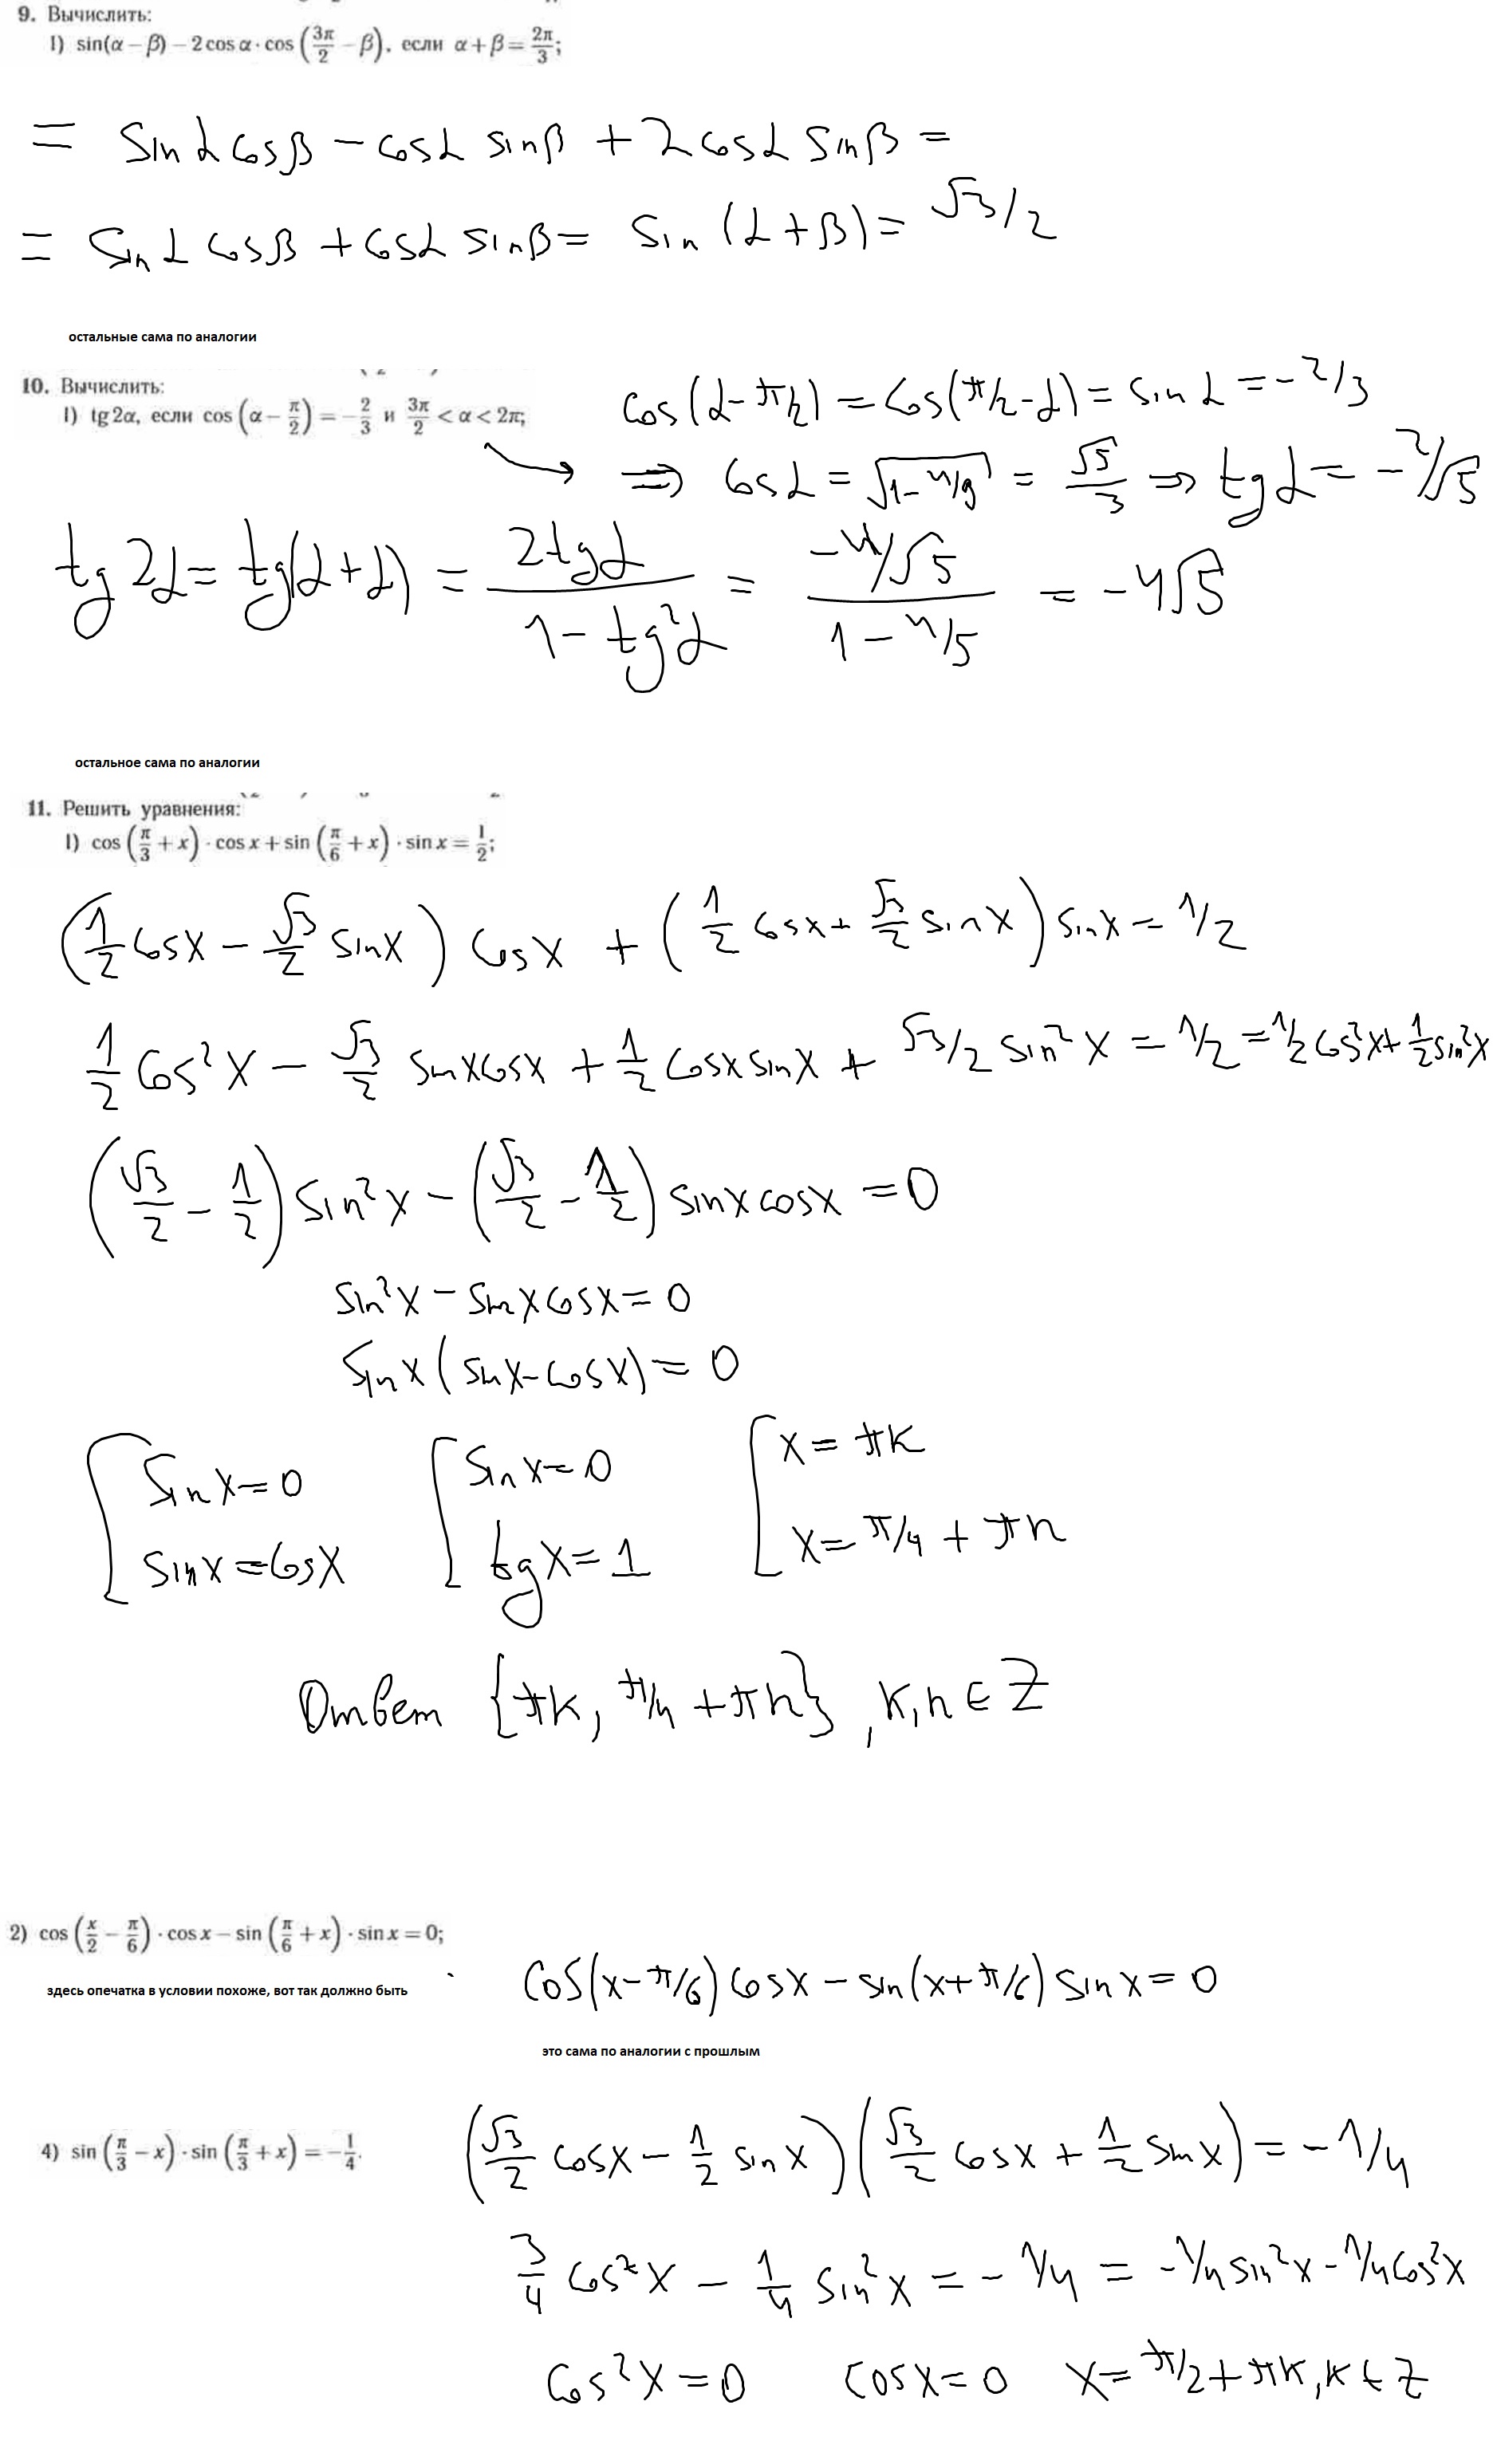 9. Вычислить:
1) sin(α − β) − 2 cos α · cos (3π/2 − β), если α + β = 2π/3;
= sin α cos β − cos α sin β + 2 cos α sin β =
= sin α cos β + cos α sin β = sin (α + β) = √3/2
остальные сама по аналогии
10. Вычислить:
1) tg 2α, если cos (α − π/2) = −2/3 и 3π/2 < α < 2π;
cos (α − π/2) = cos (π/2 − α) = sin α = −2/3
⇒ cos α = √(1 − 4/9) = √5/3 ⇒ tg α = −2/√5
tg 2α = tg(α + α) = 2tg α/(1 − tg²α) = (−4/√5)/(1 − 4/5) = −4√5
остальное сама по аналогии
11. Решить уравнения:
1) cos (π/3 + x) · cos x + sin (π/6 + x) · sin x = 1/2;
(1/2 cos x − √3/2 sin x) cos x + (1/2 cos x + √3/2 sin x) sin x = 1/2
1/2 cos² x − √3/2 sin x cos x + 1/2 cos x sin x + √3/2 sin² x = 1/2 = 1/2 cos² x + 1/2 sin² x
(√3/2 − 1/2) sin² x − (√3/2 − 1/2) sin x cos x = 0
sin² x − sin x cos x = 0
sin x (sin x − cos x) = 0
[ sin x = 0 [ sin x = 0 [ x = πk
sin x = cos x tg x = 1 x = π/4 + πn
Ответ {πk, π/4 + πn}, k, n ∈ Z
2) cos (x/2 − π/6) · cos x − sin (π/6 + x) · sin x = 0;
здесь опечатка в условии похоже, вот так должно быть
cos (x − π/6) cos x − sin (x + π/6) sin x = 0
это сама по аналогии с прошлым
4) sin (π/3 − x) · sin (π/3 + x) = −1/4.
(√3/2 cos x − 1/2 sin x) (√3/2 cos x + 1/2 sin x) = −1/4
3/4 cos² x − 1/4 sin² x = −1/4 = −1/4 sin² x − 1/4 cos² x
cos² x = 0 cos x = 0 x = π/2 + πk, k ∈ Z